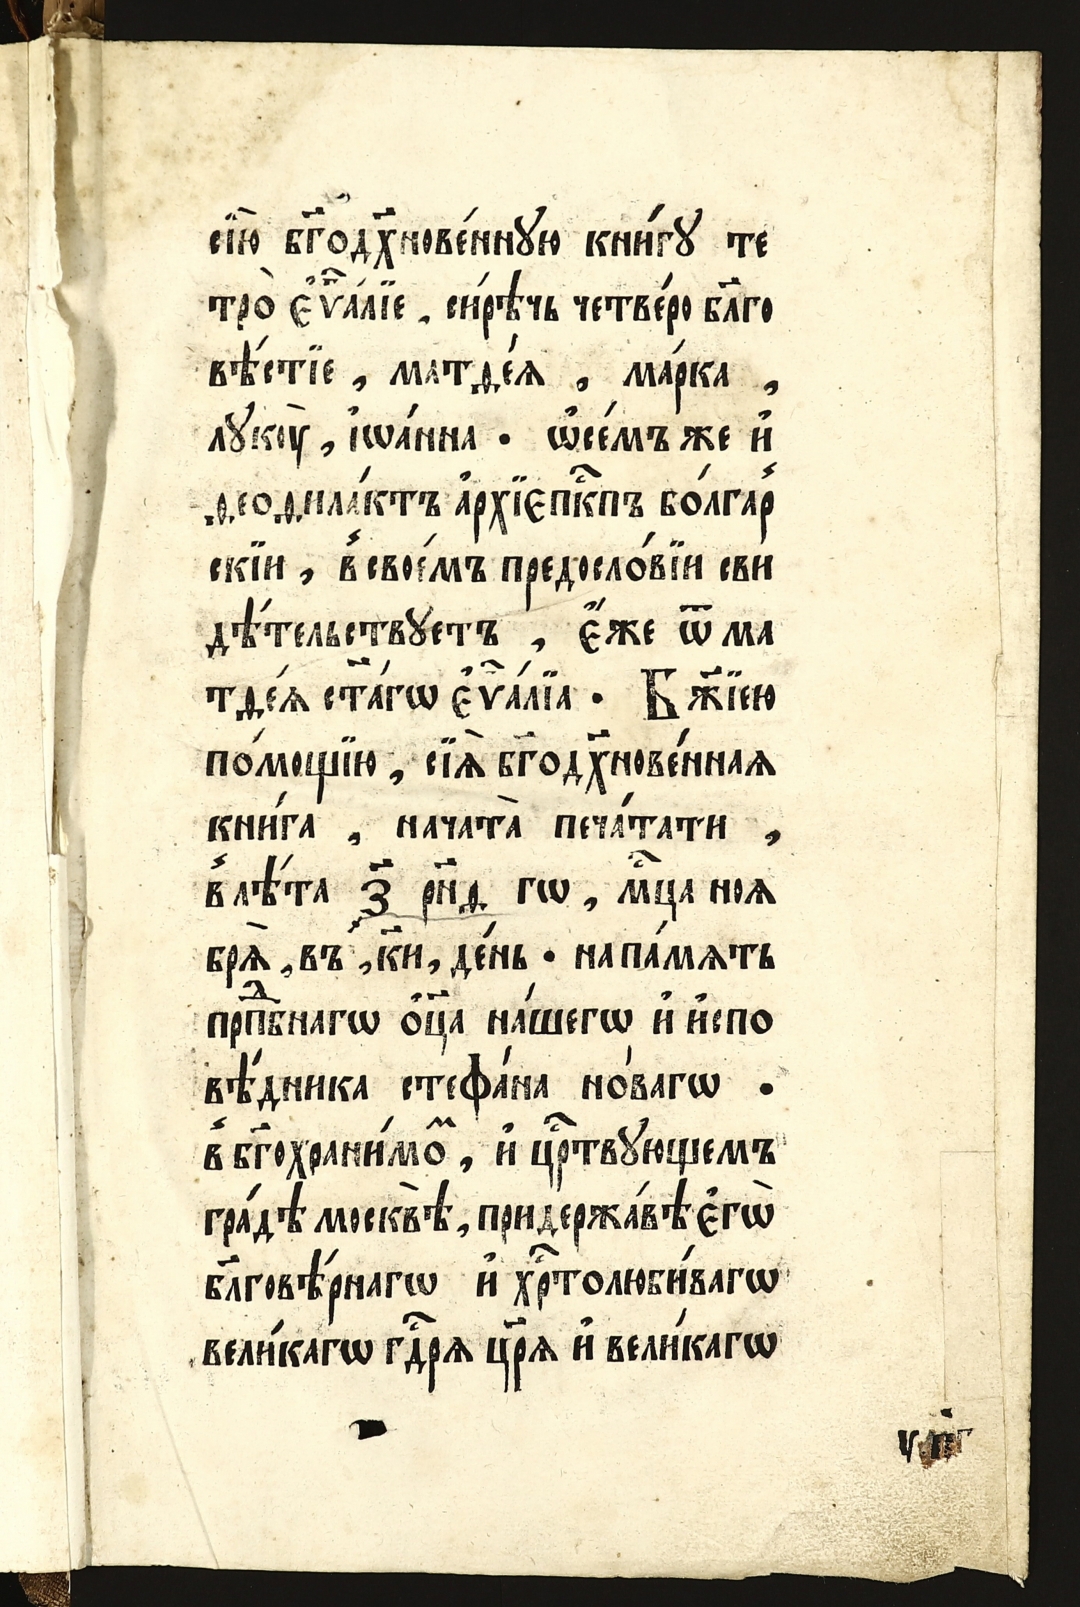 сїю̀ бг҃одх҃нове́ннꙋю кни́гꙋ те
тро̀ є҆ѵⷢ҇а́лїе , си́рѣчь четве́ро бл҃го
вѣ́стїе , матѳе́ѧ , ма́рка ,
лꙋкою̀ , і҆ѡа́нна . ѡ҆се́мъ же и҆
ѳеоѳила́ктъ а҆рхїєпⷭ҇кпъ бо́лгар́
скїи , в̾свое́мъ предосло́вїи сви
дѣ́тельствꙋетъ , є҆́же ѿ ма
тѳе́ѧ ст҃а́гѡ є҆ѵⷢ҇а́лїа . Бж҃їею
по́мощїю , сїѧ̀ бг҃одх҃нове́ннаѧ
кни́га , начата̀ печа́тати ,
в̾лѣ́та ҂з҃ рн҃д гѡ , мⷭ҇ца ноѧ
брѧ̀ , въ , к҃и , де́нь . на па́мѧть
прпⷣбнагѡ о҆ц҃а на́шегѡ и҆ и҆спо
вѣ́дника стефа́на но́вагѡ .
в̾ бг҃охрани́моⷨ , и҆ црⷭ҇твꙋющемъ
гра́дѣ москвѣ̀ , придержа́вѣ є҆гѡ̀
бл҃говѣ́рнагѡ и҆ хрⷭ҇толюби́вагѡ
вели́кагѡ гдⷭ҇рѧ цр҃ѧ и҆ вели́кагѡ